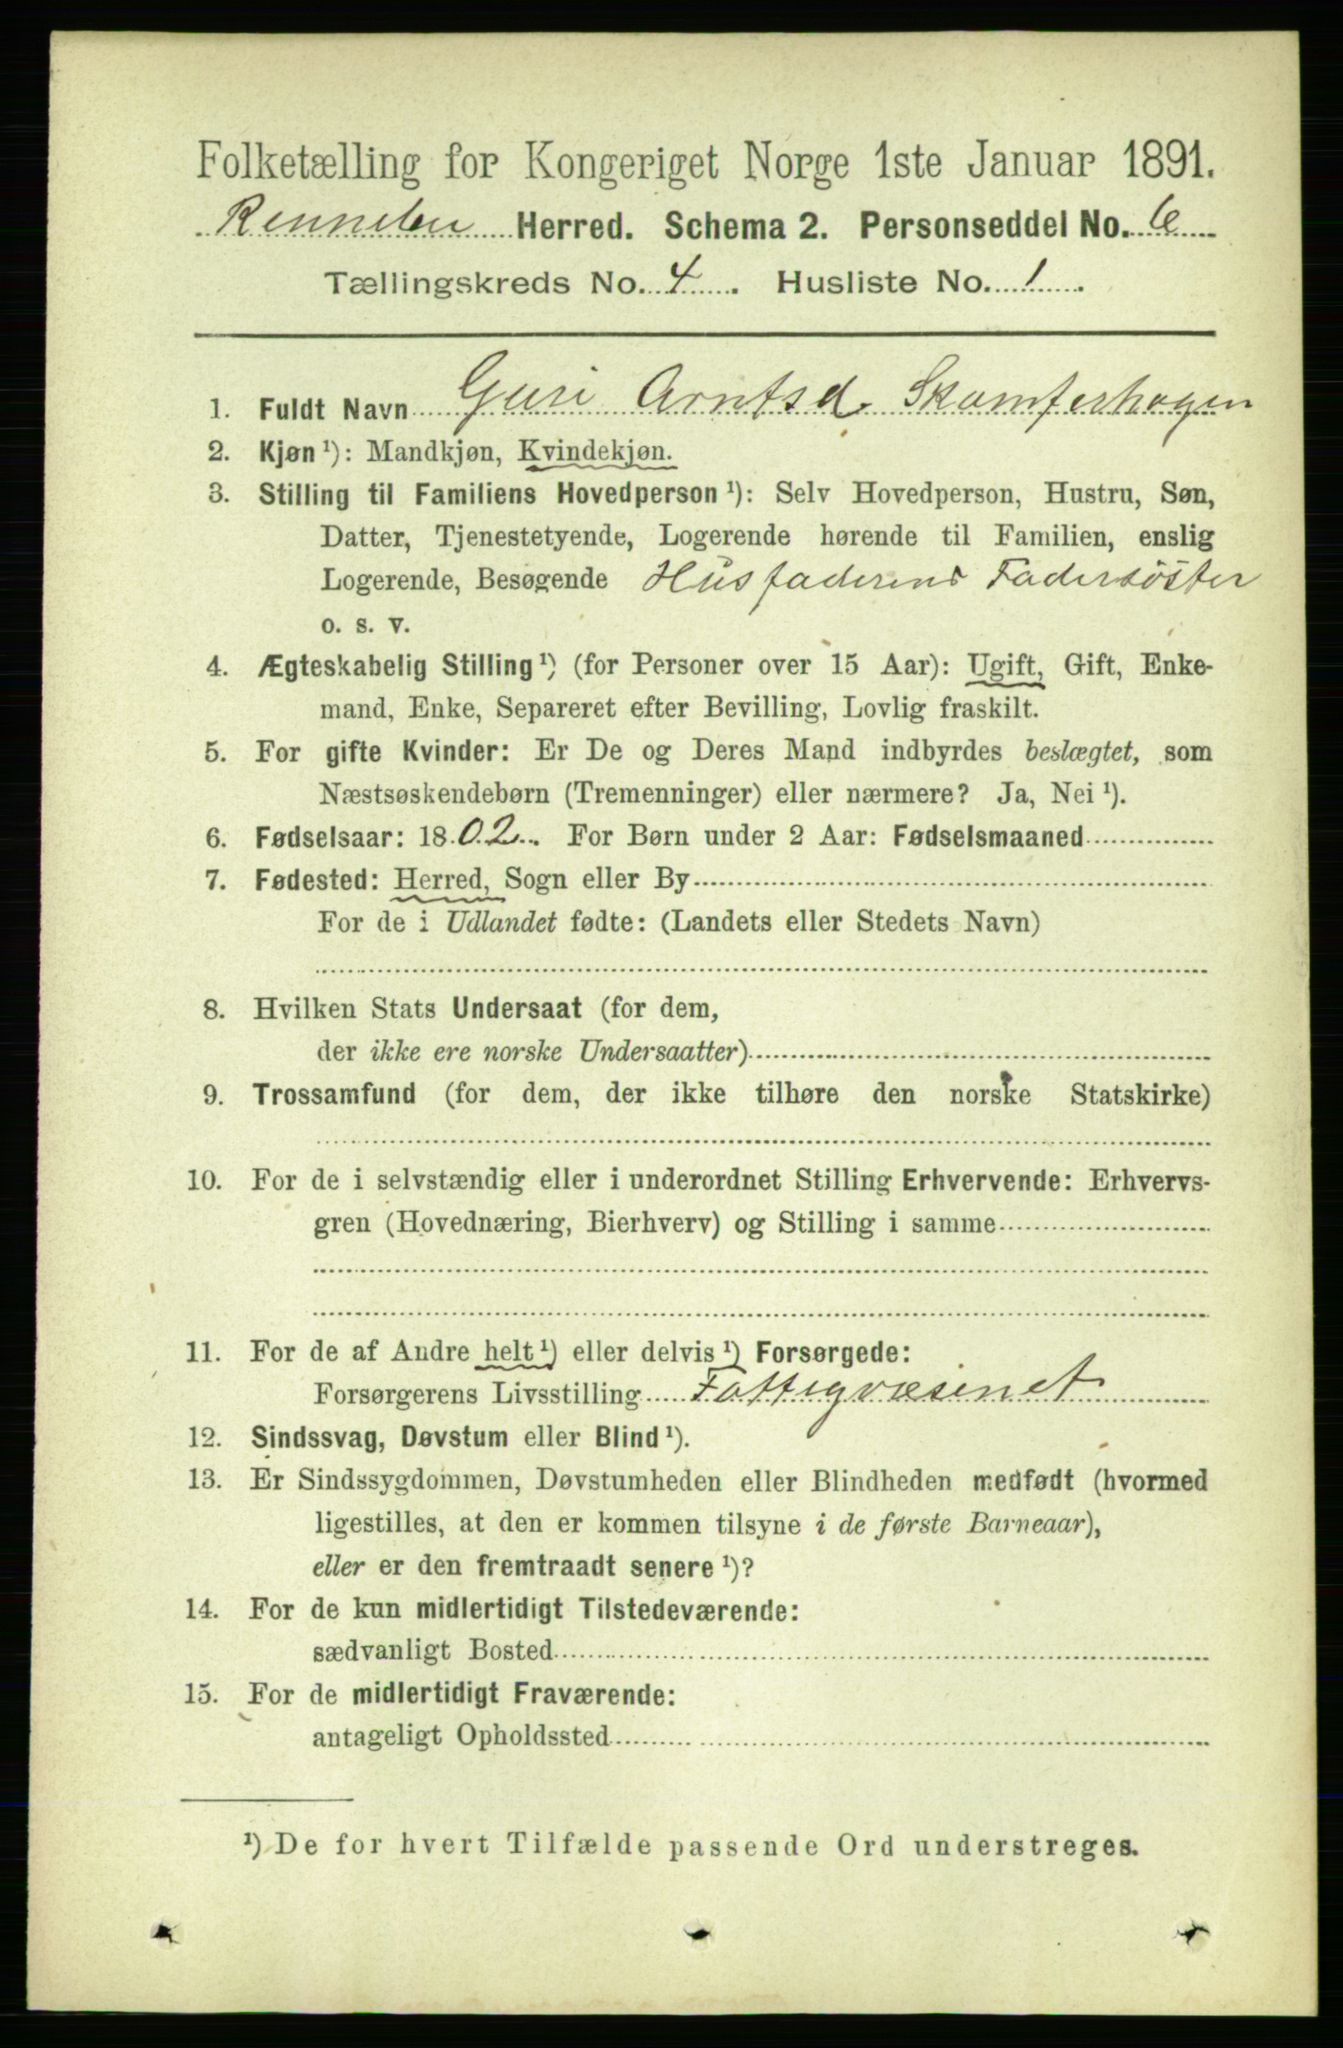 Folketælling for Kongeriget Norge 1ste Januar 1891.
Rennebu Herred. Schema 2. Personseddel No. 6
Tællingskreds No. 4. Husliste No. 1.
1. Fuldt Navn Guri Arntsd. Skamferhagen
2. Kjøn ¹): Mandkjøn, Kvindekjøn.
3. Stilling til Familiens Hovedperson ¹): Selv Hovedperson, Hustru, Søn,
Datter, Tjenestetyende, Logerende hørende til Familien, enslig
Logerende, Besøgende Husfaderens Fadersøster
o. s. v.
4. Ægteskabelig Stilling ¹) (for Personer over 15 Aar): Ugift, Gift, Enke-
mand, Enke, Separeret efter Bevilling, Lovlig fraskilt.
5. For gifte Kvinder: Er De og Deres Mand indbyrdes beslægtet, som
Næstsøskendebørn (Tremenninger) eller nærmere? Ja, Nei ¹).
6. Fødselsaar: 1802. For Børn under 2 Aar: Fødselsmaaned
7. Fødested: Herred, Sogn eller By
For de i Udlandet fødte: (Landets eller Stedets Navn)
8. Hvilken Stats Undersaat (for dem,
der ikke ere norske Undersaatter)
9. Trossamfund (for dem, der ikke tilhøre den norske Statskirke)
10. For de i selvstændig eller i underordnet Stilling Erhvervende: Erhvervs-
gren (Hovednæring, Bierhverv) og Stilling i samme
11. For de af Andre helt ¹) eller delvis ¹) Forsørgede:
Forsørgerens Livsstilling Fattigvæsenet
12. Sindssvag, Døvstum eller Blind ¹).
13. Er Sindssygdommen, Døvstumheden eller Blindheden medfødt (hvormed
ligestilles, at den er kommen tilsyne i de første Barneaar),
eller er den fremtraadt senere ¹)?
14. For de kun midlertidigt Tilstedeværende:
sædvanligt Bosted
15. For de midlertidigt Fraværende:
antageligt Opholdssted
¹) De for hvert Tilfælde passende Ord understreges.